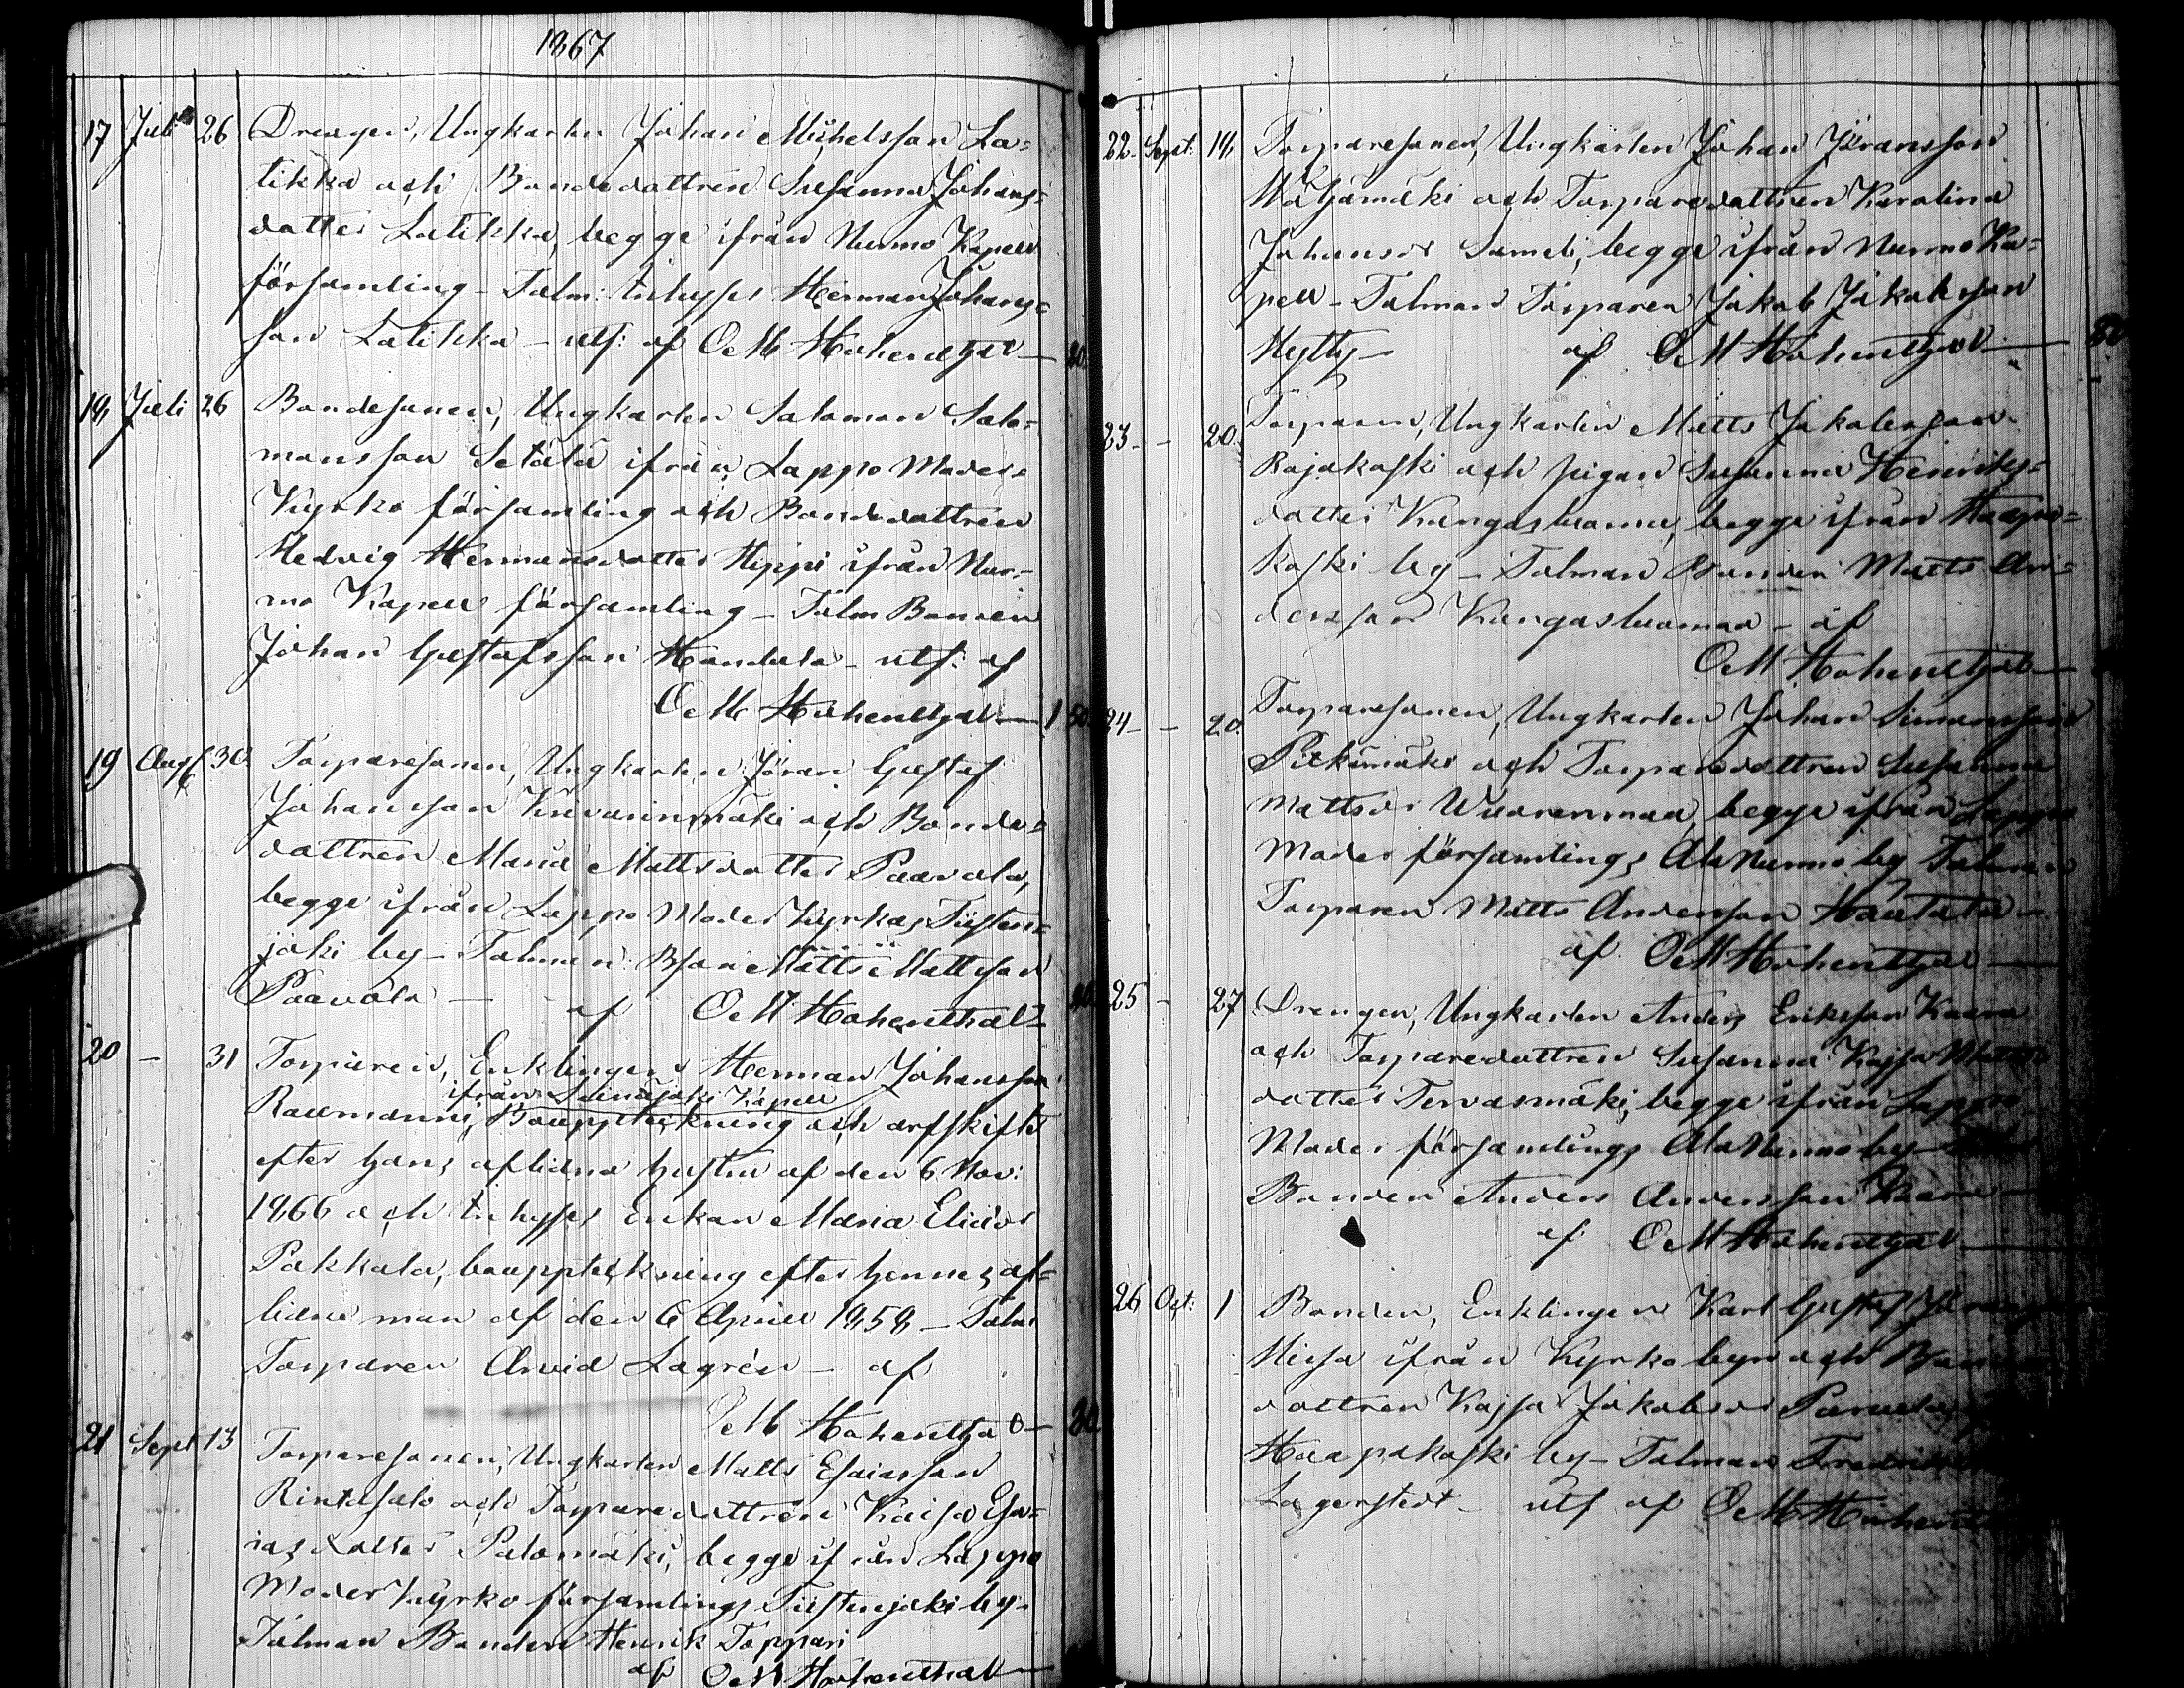 1867
17 Juli 26 Drengen, Ungkarlen Johan Michelsson La=
tikka och Bondedottren Susanna Johans=
dotter Latikka, begge ifrån Nurmo Kapell
församling – Talm: Inhyses Herman Johans=
son Latikka – utf: af OM Hohenthal –
18 Juli 26 Bondesonen, Ungkarlen Salomon Salo=
monsson Setälä ifrån Lappo Moder=
Kyrko församling och Bondedottren
Hedvig Hermansdotter Hippi ifrån Nur=
mo Kapell församling – Talm Bonden
Johan Gustafsson Handela – utf: af
OM Hohenthal – 1 50
19 Aug 30. Torparesonen, Ungkarlen Jöran Gustaf
Johansson Kivarinmäki och Bonde=
dottren Maria Mattsdotter Paavola,
begge ifrån Lappo Moder Kyrkas Tiisten=
joki by – Talman: Bson Matts Mattsson
Paavola – af OM Hohenthal –
20 – 31 Torparen, Enklingen Herman Johansson
ifrån Seinäjoki Kapell
Raumanni, Bouppteckning och arfskifte
efter hans aflidna hustru af den 6 Nov:
1866 och Inhyses Enkan Maria Eliæd:r
Pakkala, bouppteckning efter hennes af=
lidne man af den 6 April 1858 – Talm
Torparen Arvid Lagrén – af
OM Hohenthal – 80
21 Sept 13 Torparesonen, Ungkarlen Matts Esaiasson
Rintasalo och Torparedottren Kaisa Esa=
iasdotter Palomäki, begge ifrån Lappo
Moder Kyrko församlings Tiistenjoki by –
Talman Bonden Henrik Toppari
af OM Hohenthal –
22. Sept: 18 Torparesonen, Ungkarlen Johan Jöransson
Wäljämäki och Torparedottren Karolina
Johansd:r Sameli, begge ifrån Nurmo Ka=
pell – Talman Torparen Jakob Jakobsson
Hylty – af OM Hohenthal – 80
23 – – 20. Torparen, Ungkarlen Matts Jakobsson
Rajakoski och pigan Susanna Henriks=
dotter Kangasluoma, begge ifrån Haapa=
koski by – Talman Bonden Matts An=
dersson Kangasluoma – af
OM Hohenthal –
24 – – 20. Torparesonen, Ungkarlen Johan Simonsson
Pitkämäki och Torparedottren Susanna
Mattsd:r Wuorenmaa, begge ifrån Lappo
Moder församlings Ala Nurmo by Talman
Torparen Matts Andersson Hautala –
af OM Hohenthal –
25 – 27 Drengen, Ungkarlen Anders Eriksson Kaara
och Torparedottren Susanna Kajsa Matts
dotter Tervasmäki, begge ifrån Lappo
Moder församlings Ala Nurmo by –
Bonden Anders Andersson Kaara –
af OM Hohenthal –
26 Oct: 1 Bonden, Enklingen Karl Gustaf
Hirsa ifrån Kyrko byn och
dottren Kajsa Jakobsd:r
Haapakoski by – Talman
Lagerstedt – utf af OM